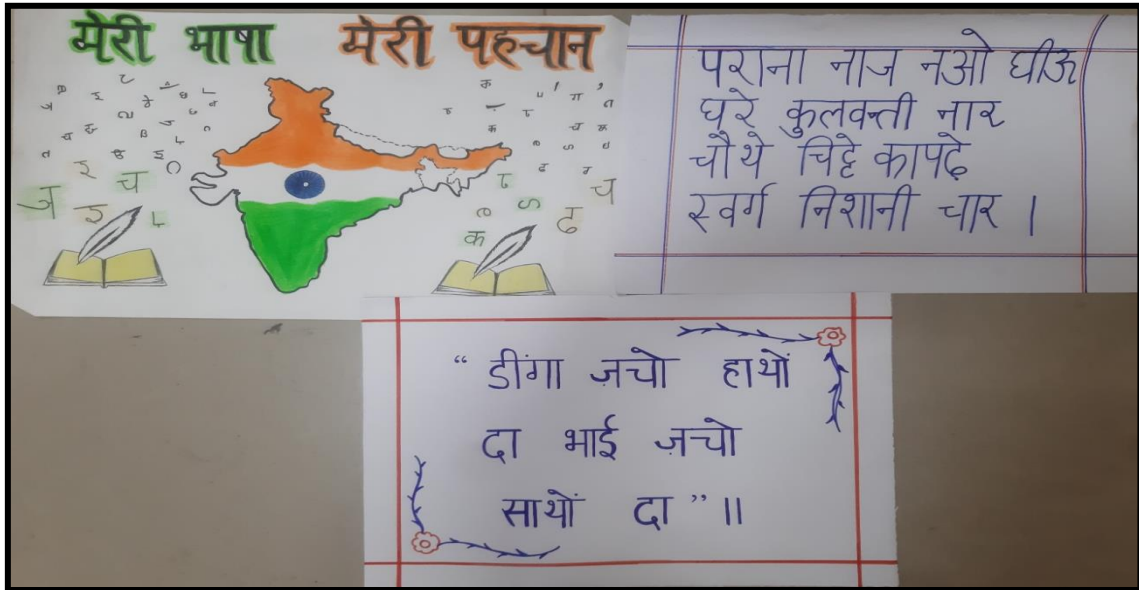 मेरी भाषा मेरी पहचान
पराना नाज नओ घीऊ
घरे कुलवन्ती नार
चौथे चिट्टे कापदे
स्वर्ग निशानी चार ।
“ डींगा ज़चो हाथों
दा भाई ज़चो
साथों दा ” ॥